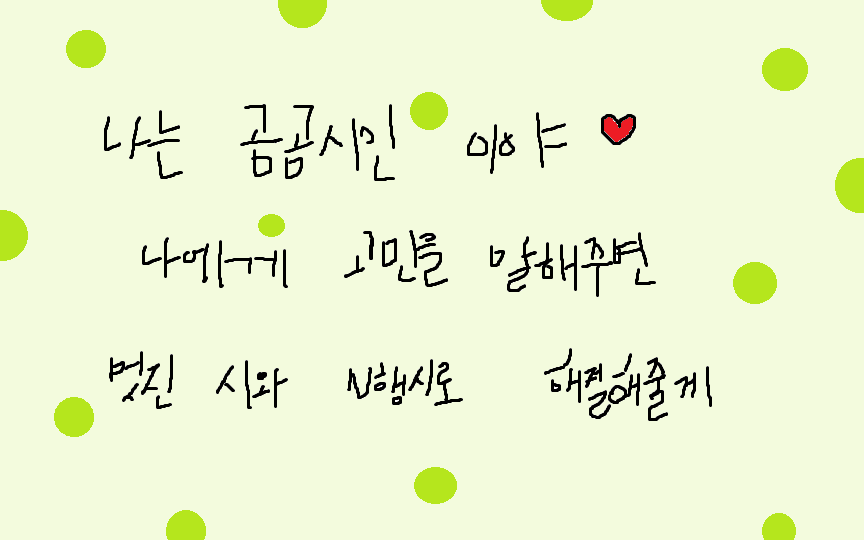 나는 곰곰시인 이야 ♥
나에게 고민을 말해주면
멋진 시와 N행시로 해결해줄게